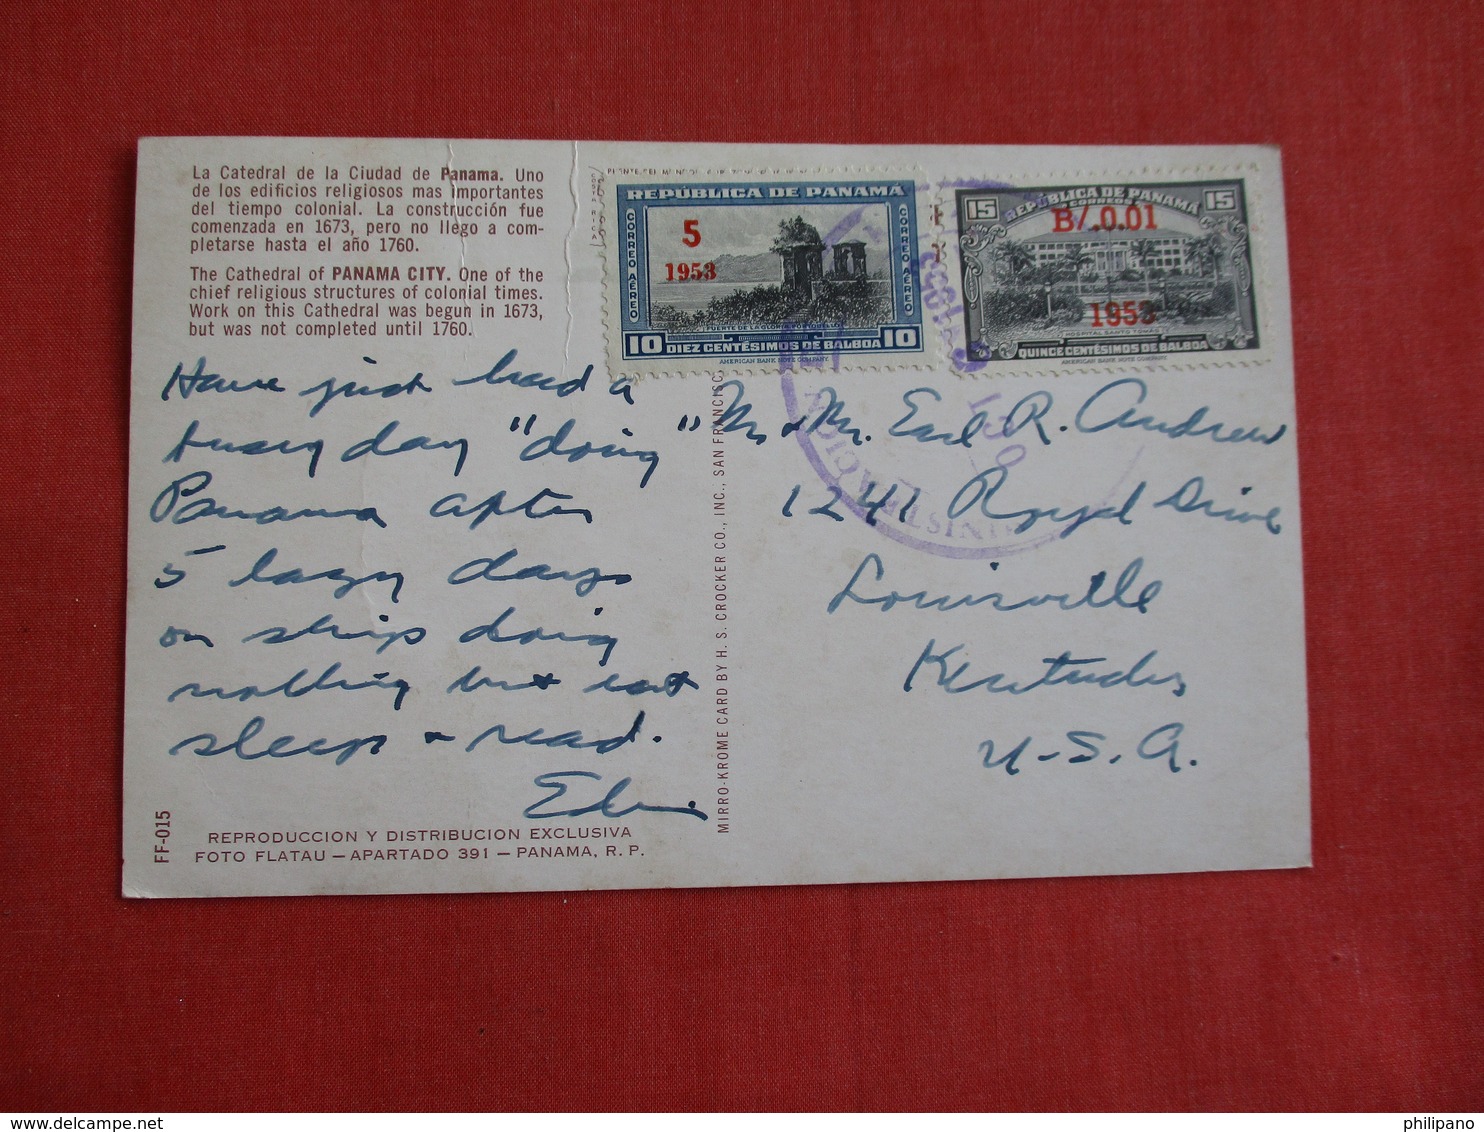 La Catedral de la Ciudad de Panama. Uno
de los edificios religiosos mas importantes
del tiempo colonial. La construcción fue
comenzada en 1673, pero no llego a com-
pletarse hasta el año 1760.
The Cathedral of PANAMA CITY. One of the
chief religious structures of colonial times.
Work on this Cathedral was begun in 1673,
but was not completed until 1760.
Have just had a
busy day "doing"
Panama after
5 lazy days
on ship doing
nothing but eat
sleep & read.
FF-015
REPRODUCCION Y DISTRIBUCION EXCLUSIVA
FOTO FLATAU — APARTADO 391 — PANAMA, R. P.
MIRRO-KROME CARD BY H. S. CROCKER CO., INC., SAN FRANCISC
REPÚBLICA DE PANAMÁ
CORREO AÉREO
5
1953
CORREO AÉREO
10 DIEZ CENTÉSIMOS DE BALBOA 10
AMERICAN BANK NOTE COMPANY
15 REPÚBLICA DE PANAMÁ 15
CORREOS
B/.0.01
1953
HOSPITAL SANTO TOMÁS
QUINCE CENTÉSIMOS DE BALBOA
AMERICAN BANK NOTE COMPANY
M. & Mr. Earl R. Andrew
1241 Royal Drive
Louisville
Kentucky
U.S.A.
delcampe.net
philipano